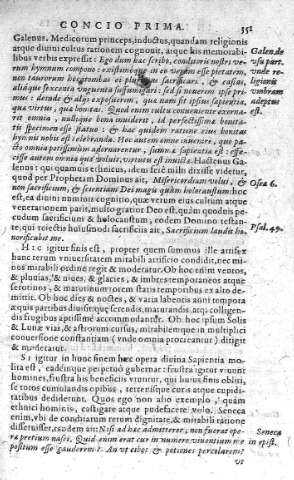 CONCIO PRIMA. 351
Galenus. Medicorum princeps, inductus, quandam religionis
atque divini cultus rationem cognovit, atque his memorabi-
libus verbis expressit: Ego dum hæc scribo, conditoris nostri ve-
rum hymnum compono: existimoque in eo veram esse pietatem,
non taurorum hecatombas ei plurimas sacrificari, & casias,
aliaque sexcenta unguenta suffumigari: sed si noverim ipse pri-
mus: deinde & aliis exposuerim, qua nam sit ipsius sapientia,
qua virtus, qua bonitas. Quod enim cultu convenienti exorna-
rit omnia, nullique bona inviderit, id perfectissimæ bonita-
tis specimen esse statuo: & hac quidem ratione eius bonitas
hymnis nobis est celebranda. Hoc autem omne invenire, quo pa-
cto omnia potissimum adornarentur, summæ sapientiæ est: effe-
cisse autem omnia quæ voluit, virtutis est invictæ. Hactenus Ga-
lenus: qui quamvis ethnicus, idem scire mihi dixisse videtur,
quod per Prophetam Dominus ait, Misericordiam volui, &
non sacrificium, & scientiam Dei magis quàm holocaustum: hoc
est, ea divini numinis cognitio, quæ verum eius cultum atque
venerationem parit, multo gratior Deo est, quàm quodvis pe-
cudum sacrificium & holocaustum, eodem Domino testan-
te, qui reiectis huiusmodi sacrificiis ait, Sacrificium laudis ho-
norificabit me.
Hic igitur finis est, propter quem summus ille artifex
hanc rerum universitatem mirabili artificio condidit, nec mi-
nus mirabili ordine regit & moderatur. Ob hoc enim ventos,
& pluvias, & nives, & glacies, & imbres temporaneos atque
serotinos, & mare universum statis temporibus ex alto de-
mittit. Ob hoc dies & noctes, & varia labentis anni tempora
æquis partibus divisit quæ serendis, maturandis, atque colligen-
dis frugibus aptissime accommodantur. Ob hoc ipsum Solis
& Lunæ vias, & astrorum cursus, mirabilemque in multiplici
conversione constantiam (unde omnia procreantur) dirigit
& moderatur.
Si igitur in hunc finem hæc opera divina Sapientia mo-
lita est, eademque perpetuò gubernat: frustra igitur vivunt
homines, frustra his beneficiis vtuntur, qui huius finis obliti,
se totos cumulandis opibus, terrenisque curis atque cupidi-
tatibus dediderunt. Quos ego non alio exemplo, quàm
ethnici hominis, castigare atque pudefacere volo. Seneca
enim, vbi de conditarum rerum dignitate, & mirabili ratione
disseruisset, eadem ait: Nisi ad hæc admitterer, non fuerat ope-
ræ pretium nasci. Quid enim erat cur in numero viventium me
positum esse gauderem? An vt cibos & potiones percolarem?
vt
Galen. de
usu part.
unde re-
ligionis
umbram
adeptus
est.
Osea 6.
Psal. 49.
Seneca
in epist.